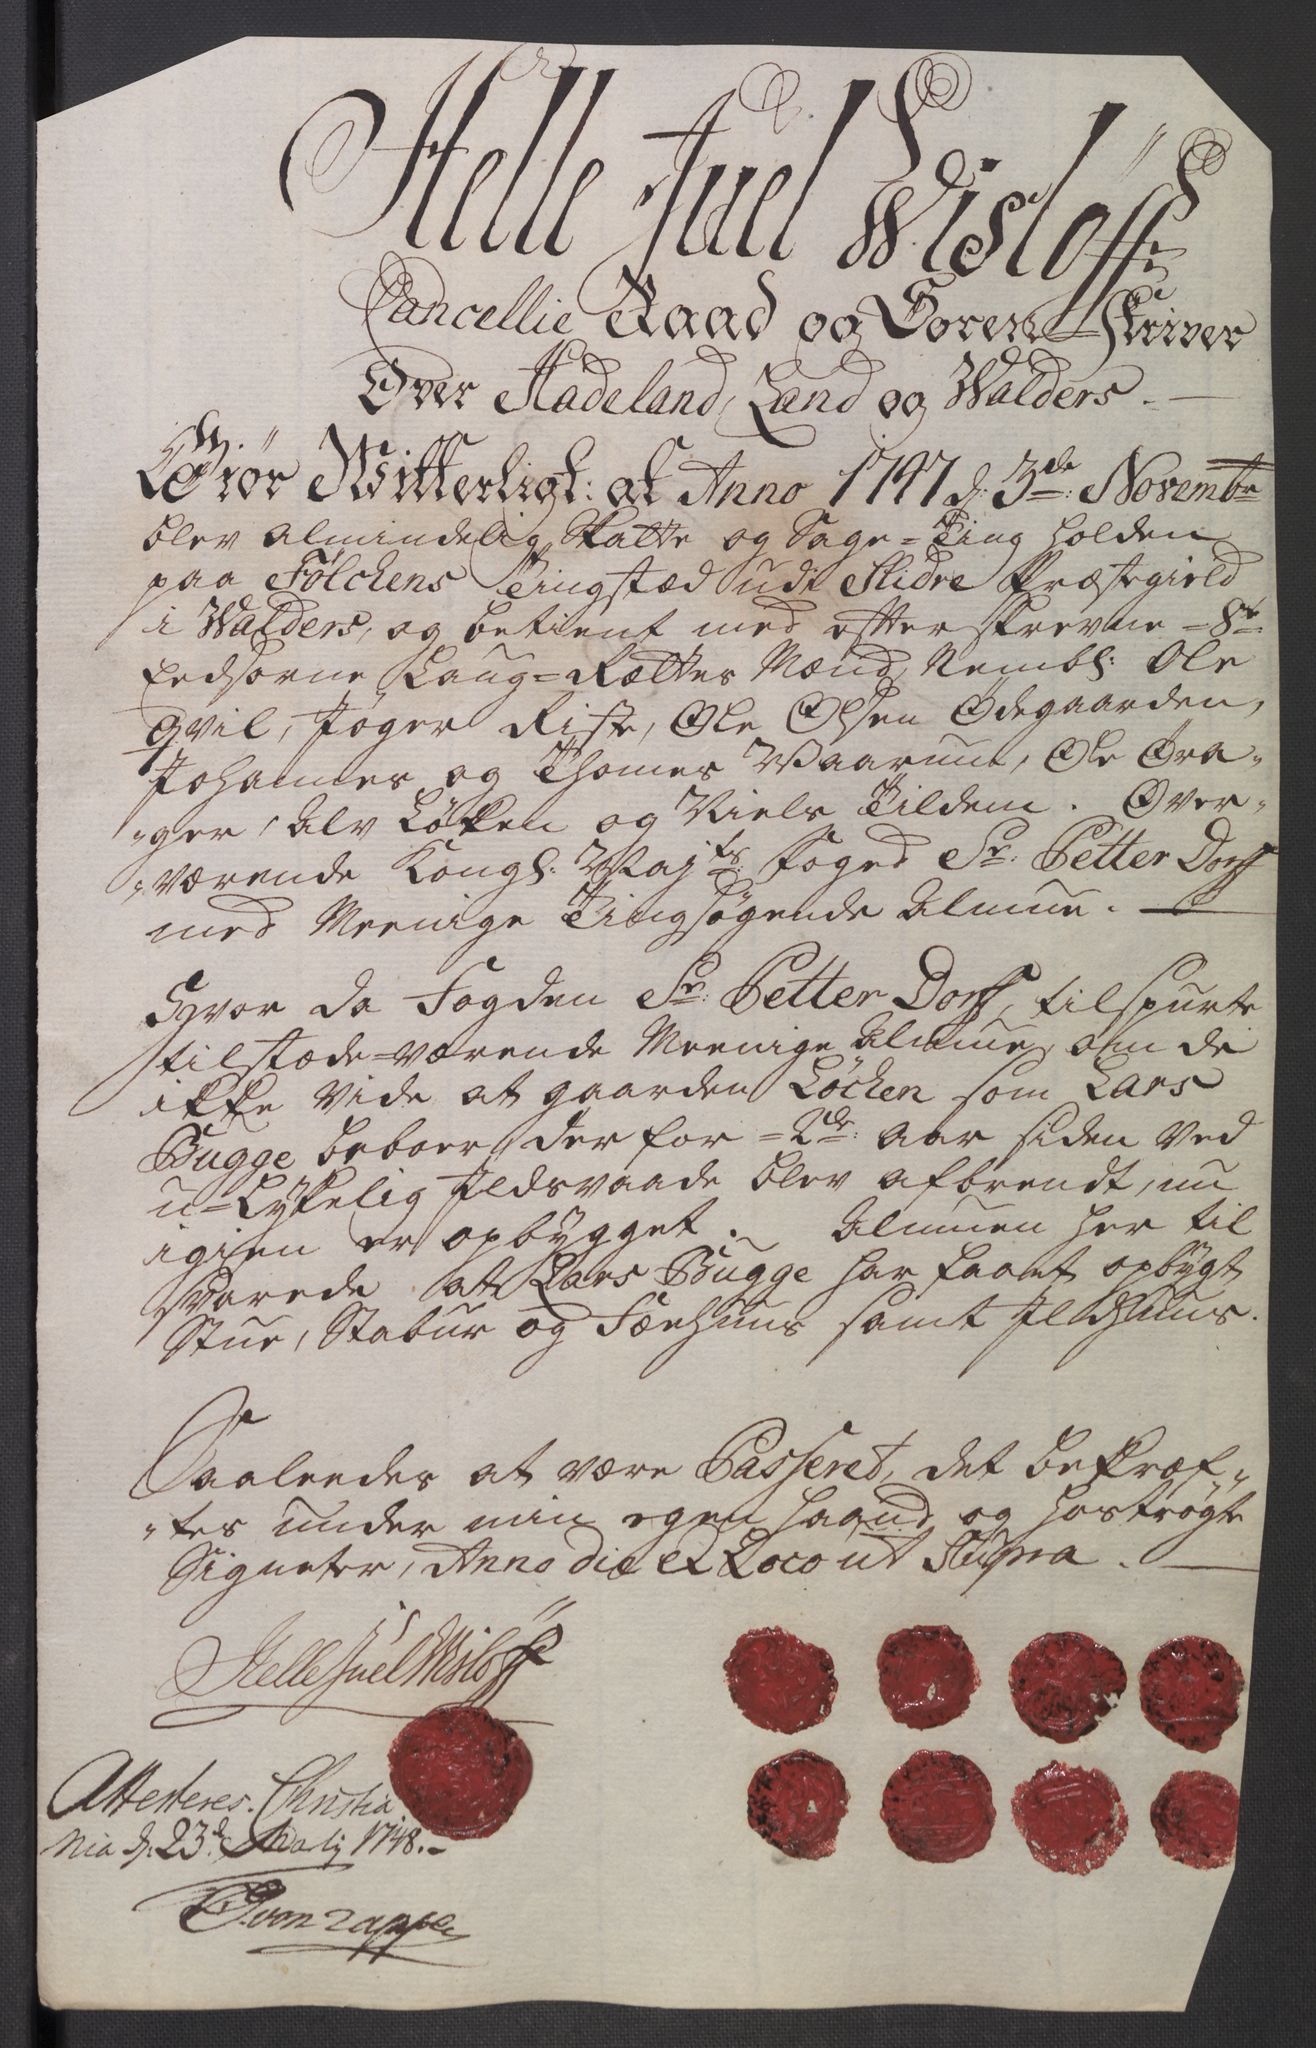 Helle Juel Wisløff
Cancellie Raad og Soren-Skriver
Over Hadeland, Land og Walders.
Giør Witterligt: at Anno 1747 d: 3de: Novembr
blev almindelig Skatte og Sage-Ting holden
paa Følchens Tingstæd udi Slidre Præstegield
i Walders, og betient med efterskrevne 8te
Eedsorne Laug-Rættes Mænd, Nembl: Ole
Qvil, Jøger Riste, Ole Olsen Ødegaarden,
Johannes og Thomes Waarum, Ole Øra-
-ger, Alv Løken og Niels Tildem. Over-
-værende Kongl: Mayts: Foged Sr: Petter Dorff
med Meenige Tingsøgende Almue.
Hvor da Fogden Sr: Petter Dorff, tilspurte
tilstæde-værende Meenige Almue, om de
ikke vide at gaarden Løchen som Lars
Bugge beboer, der for 2de: aar siden ved
u-Lykelig Ildsvaade blev afbrendt, nu
igien er opbygget. Almuen her til
svarede at Lars Bugge har faaet opbygt
Stue, Stabur og Fæehuus samt Ildhuus.
Saaledes at være Passeret, det bekræf-
-tes under min egen haand og hostrøgte
Signeter, Anno die et Loco ut Supra.
Helle Juel Wisløff
Attesteres. Christia
nia d: 23de Maij 1748.
von Zappe